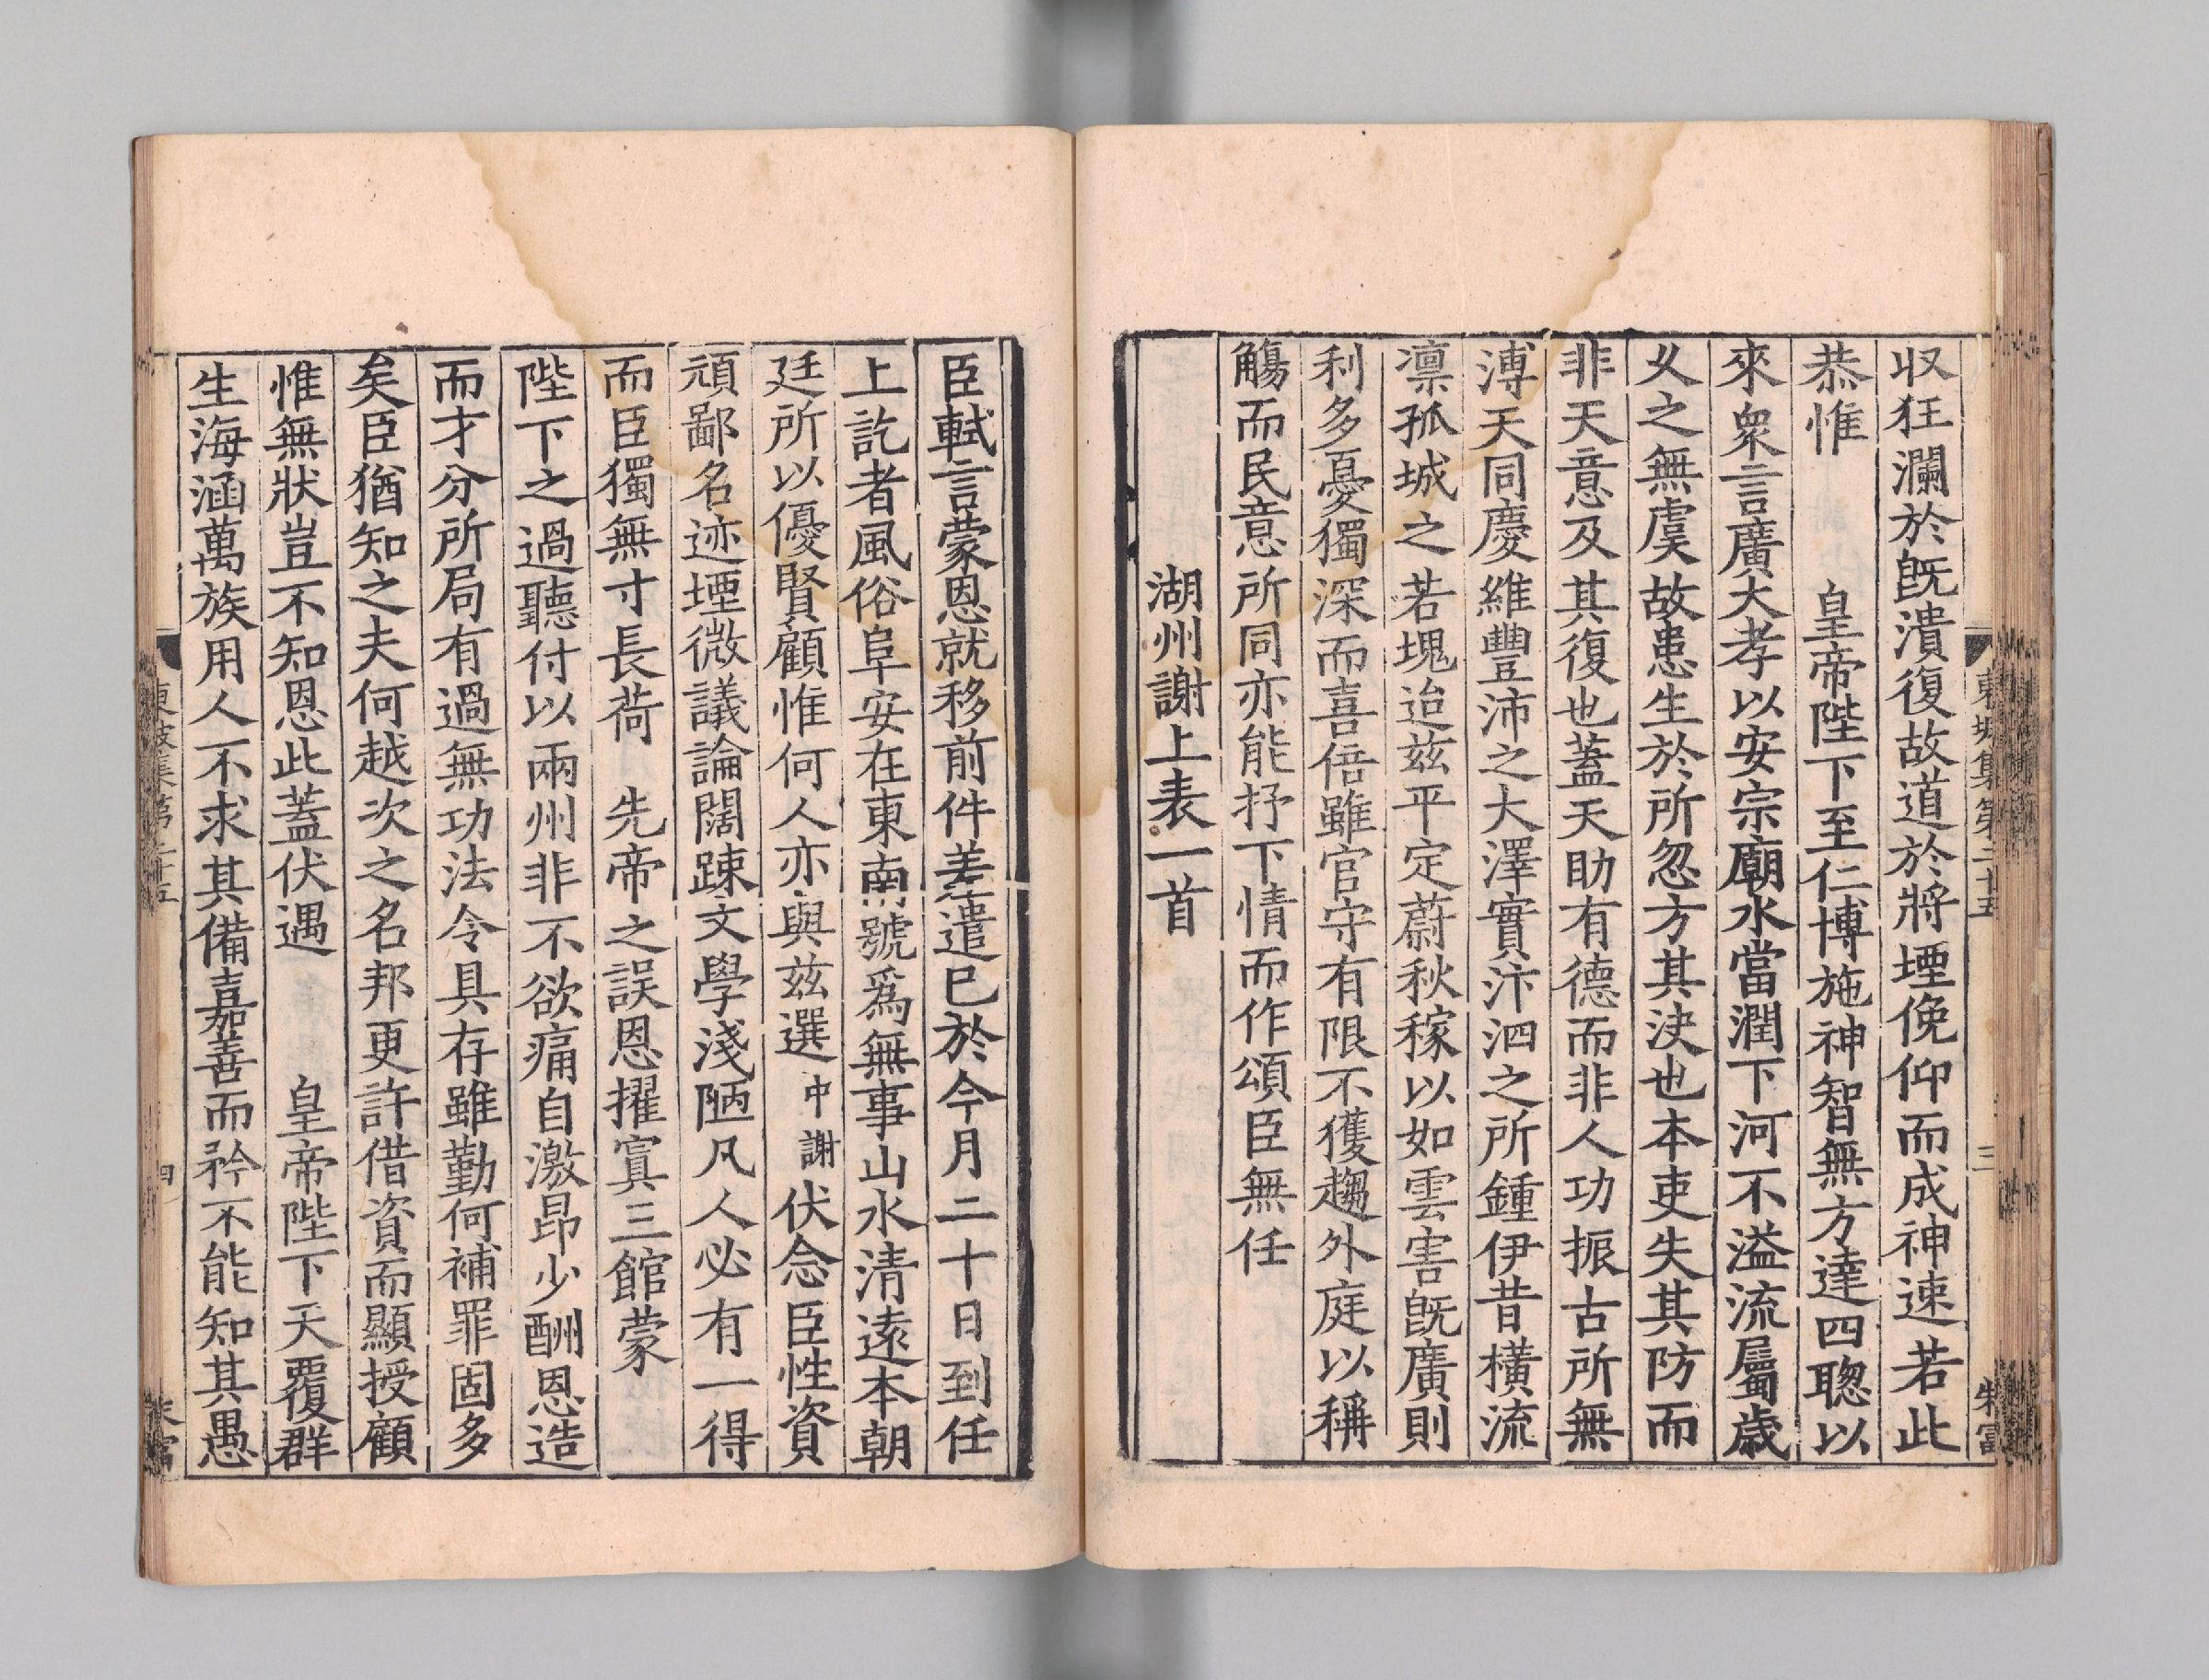 収狂瀾於旣潰復故道於將堙俛仰而成神速若此
恭惟　皇帝陛下至仁博施神智無方達四聦以
來衆言廣大孝以安宗廟水當潤下河不溢流屬歳
乂之無虞故患生於所忽方其决也本吏失其防而
非天意及其復也蓋天助有德而非人功振古所無
溥天同慶維豐沛之大澤實汴泗之所鍾伊昔橫流
凛孤城之若塊迨兹平定蔚秋稼以如雲害旣廣則
利多憂獨深而喜倍雖官守有限不獲趨外庭以稱
觴而民意所同亦能抒下情而作頌臣無任
湖州謝上表一首
臣軾言蒙恩就移前件差遣已於今月二十日到任
上訖者風俗阜安在東南號爲無事山水清逺本朝
廷所以優賢顧惟何人亦與兹選中謝伏念臣性資
頑鄙名迹堙微議論闊踈文學淺陋凡人必有一得
而臣獨無寸長荷　先帝之誤恩擢寘三館蒙
陛下之過聽付以兩州非不欲痛自激昂少酬恩造
而才分所局有過無功法令具存雖勤何補罪固多
矣臣猶知之夫何越次之名邦更許借資而顯授顧
惟無狀豈不知恩此蓋伏遇　皇帝陛下天覆群
生海涵萬族用人不求其備嘉善而矜不能知其愚
東坡集第二十五
三
朱富
東坡集第二十五
四